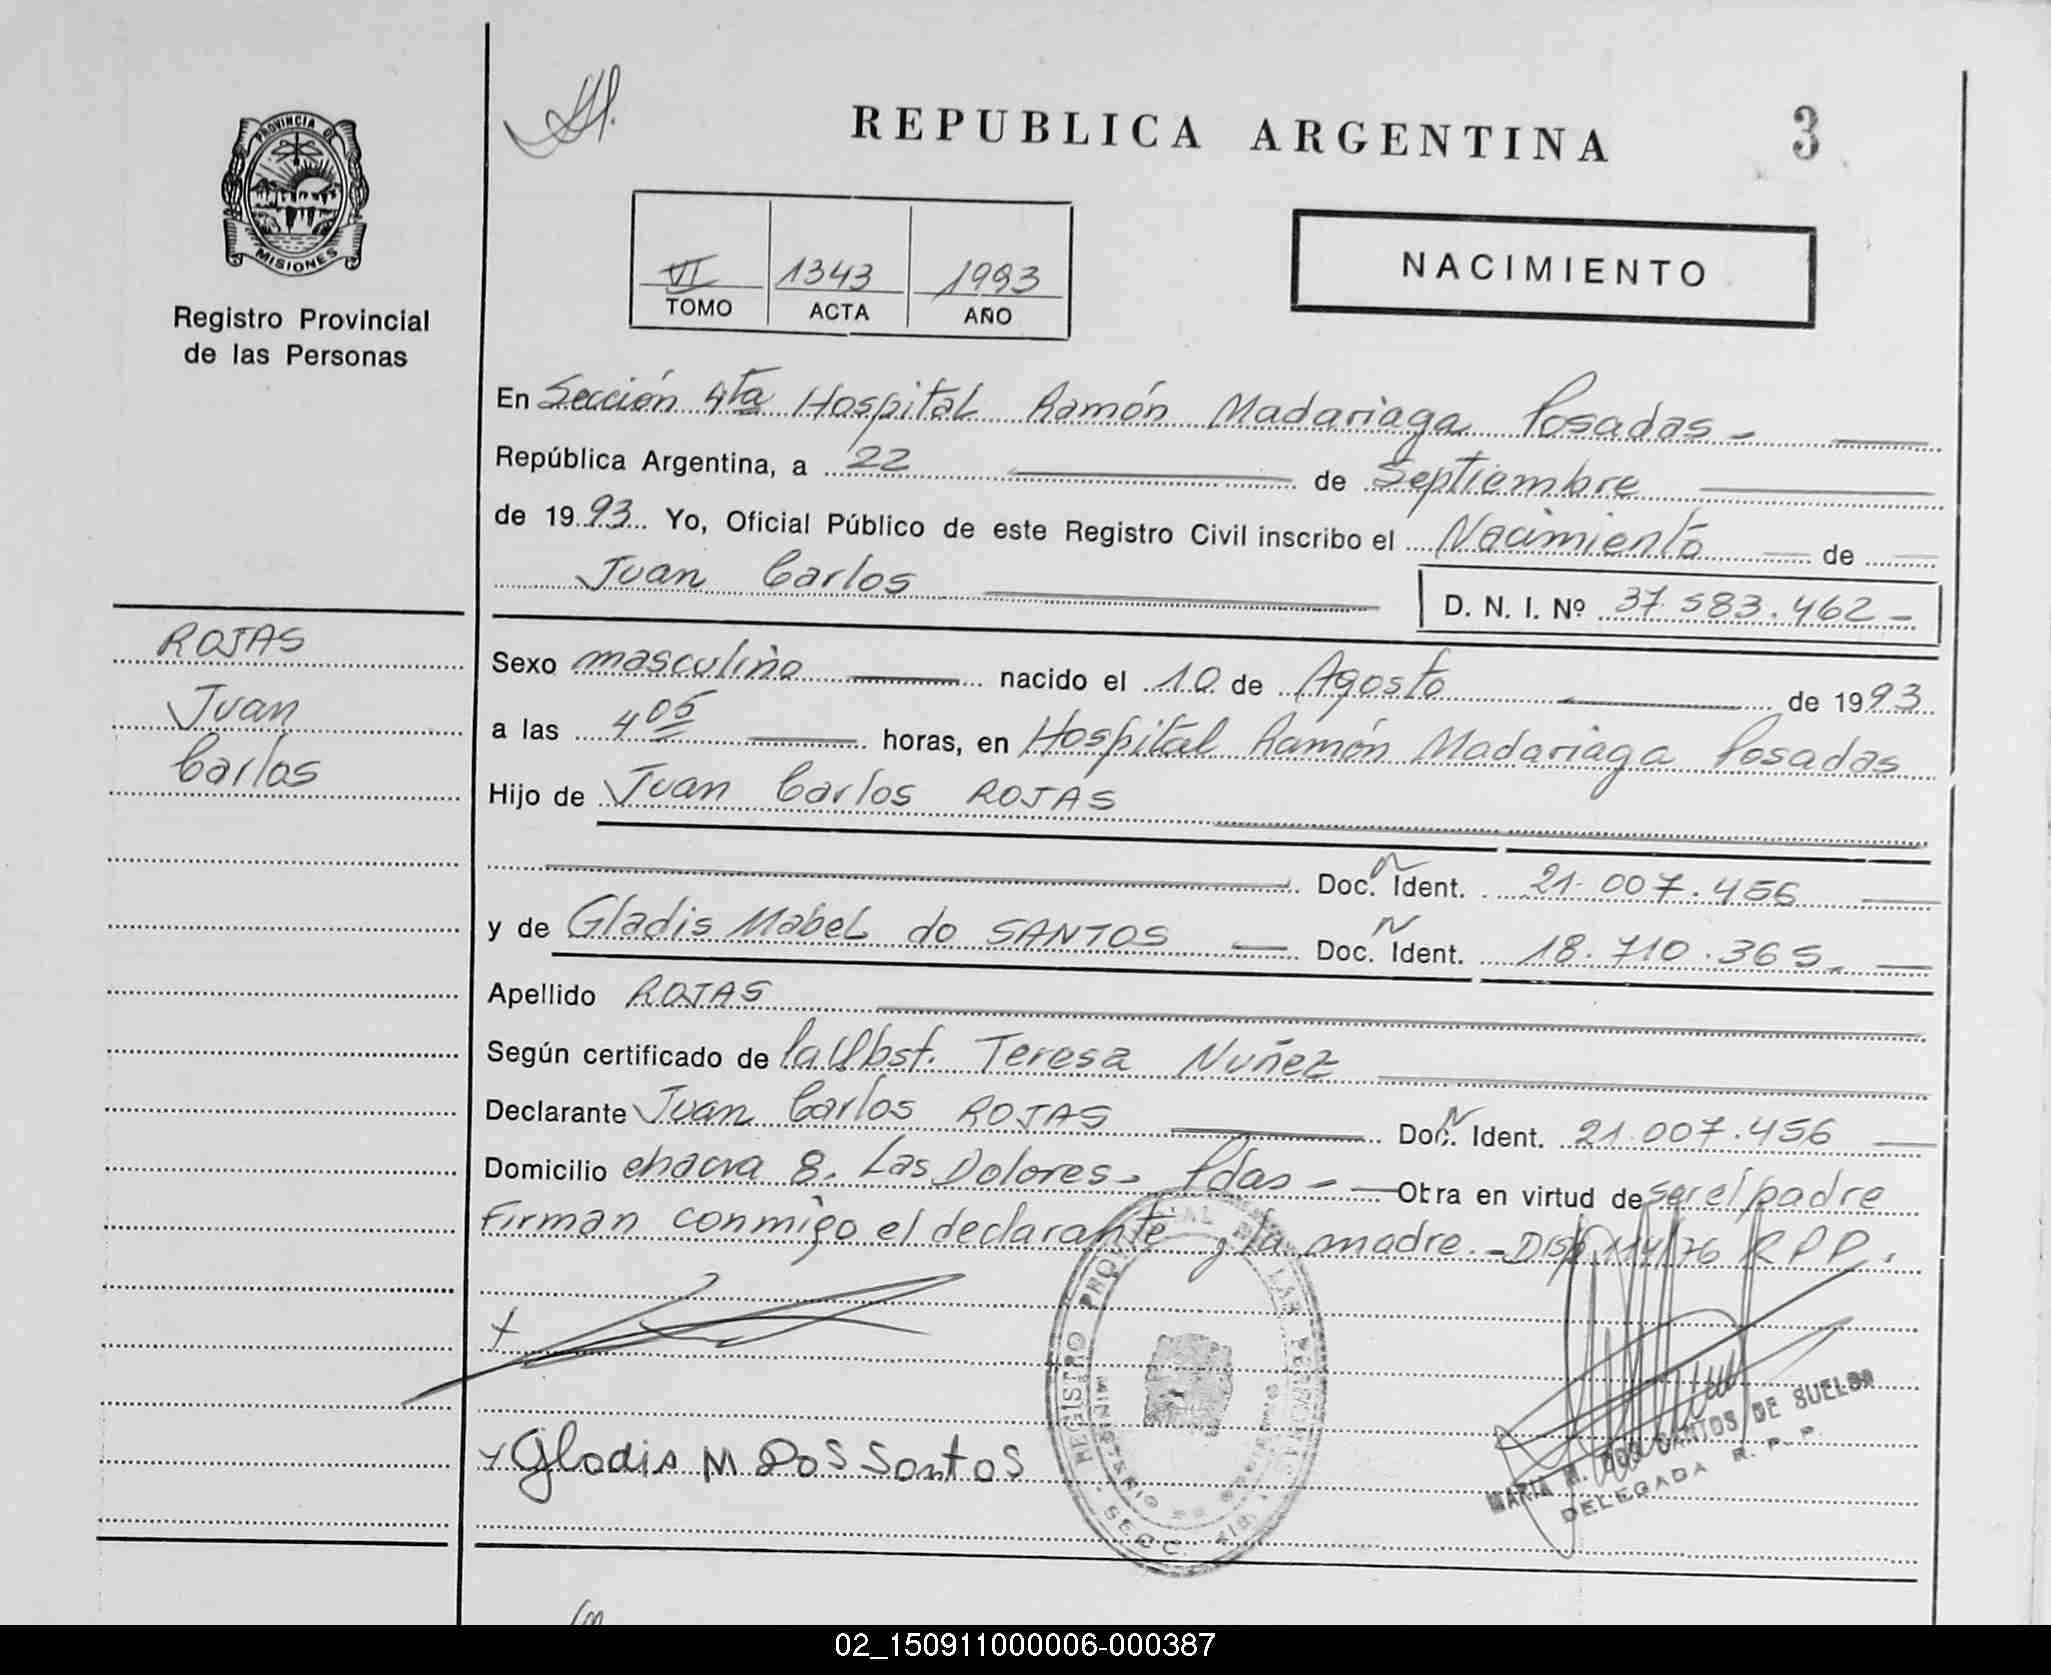 REPUBLICA ARGENTINA
3
PROVINCIA DE
MISIONES
Registro Provincial
de las Personas
VI 1343 1993
TOMO ACTA AÑO
NACIMIENTO
En Sección 4ta Hospital Ramón Madariaga Posadas -
República Argentina, a 22 de Septiembre
de 1993 Yo, Oficial Público de este Registro Civil inscribo el Nacimiento de
Juan Carlos D. N. I. Nº 37.583.462 -
ROJAS
Juan
Carlos
Sexo masculino nacido el 10 de Agosto de 1993
a las 4 05 horas, en Hospital Ramón Madariaga Posadas
Hijo de Juan Carlos ROJAS
Doc. N Ident. 21.007.456
y de Gladis Mabel do SANTOS Doc. N Ident. 18.710.365
Apellido ROJAS
Según certificado de la Obst. Teresa Nuñez
Declarante Juan Carlos ROJAS Doc. N Ident. 21.007.456
Domicilio chacra 8. Las Dolores - Pdas - Obra en virtud de ser el padre
Firman conmigo el declarante y la madre. - Disp. 114/76 R P P.
Gladis M Dos Santos
REGISTRO PROVINCIAL DE LAS PERSONAS
MINISTERIO DE
MARIA M. DOS SANTOS DE SUELDO
DELEGADA R. P. P.
02_150911000006-000387